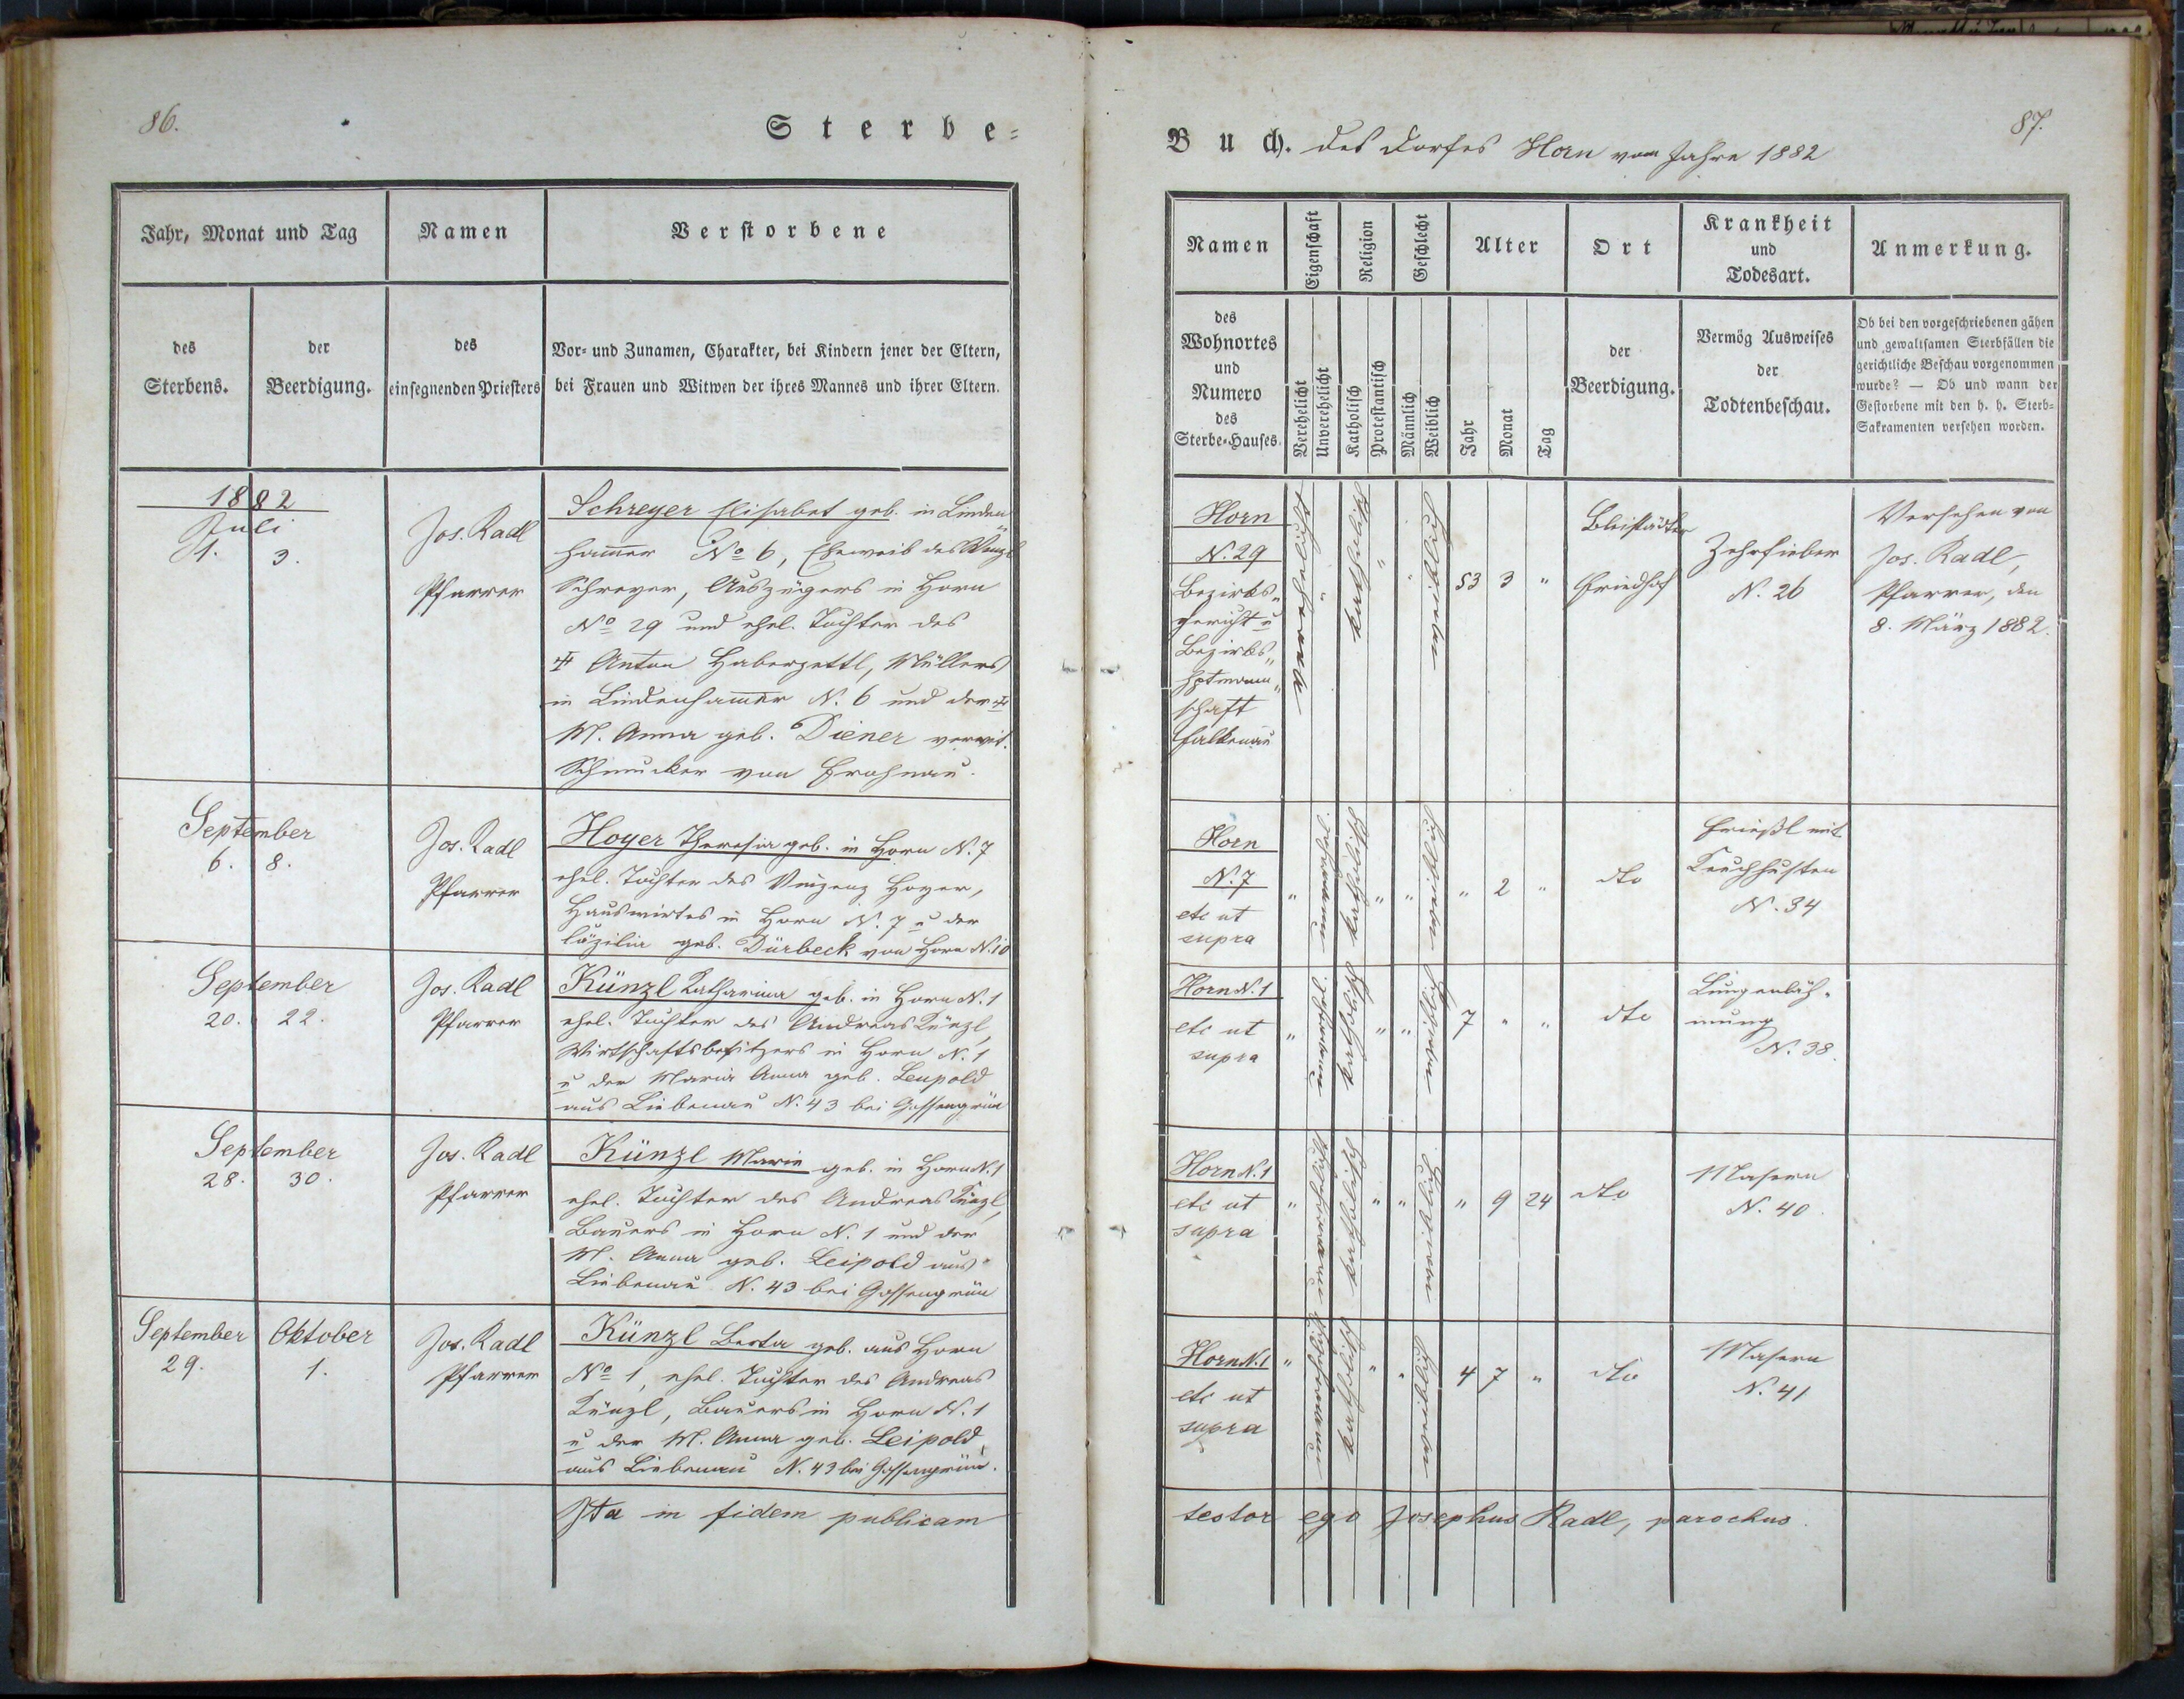 86.
Sterbe-
Jahr, Monat und Tag
Namen
Verstorbene
des
Sterbens.
der
Beerdigung.
des
einsegnenden Priesters
Vor- und Zunamen, Charakter, bei Kindern jener der Eltern,
bei Frauen und Witwen der ihres Mannes und ihrer Eltern.
1882
Juli
1. 3.
Jos. Radl
Pfarrer
Schreyer Elisabet geb. in Linden
hammer No 6, Eheweib des Wenzl
Schreyer, Auszügers in Horn
No 29 und ehel. Tochter des
Anton Haberzettl, Müllers
in Lindenhammer N. 6 und der
M. Anna geb. Diener verwit.
Schmucker von Frohnau.
September
6. 8.
Jos. Radl
Pfarrer
Hoyer Theresia geb. in Horn N. 7
ehel. Tochter des Vinzenz Hoyer,
Hauswirtes in Horn N. 7 u der
Cäzilia geb. Dürbeck von Horn N. 10
September
20. 22.
Jos. Radl
Pfarrer
Künzl Katharina geb. in Horn N. 1
ehel. Tochter des Andreas Künzl,
Wirtschaftsbesitzers in Horn N. 1
u der Maria Anna geb. Leupold
aus Liebenau N. 43 bei Gossengrün
September
28. 30.
Jos. Radl
Pfarrer
Künzl Marie geb. in Horn N. 1
ehel. Tochter des Andreas Künzl,
Bauers in Horn N. 1 und der
M. Anna geb. Leipold aus
Liebenau N. 43 bei Gossengrün
September Oktober
29. 1.
Jos. Radl
Pfarrer
Künzl Berta geb. aus Horn
No 1, ehel. Tochter des Andreas
Künzl, Bauers in Horn N. 1
u der M. Anna geb. Leipold
aus Liebenau N. 43 bei Gossengrün.
Ita in fidem publicam
87.
Buch. des Dorfes Horn vom Jahre 1882
Namen
Eigenschaft
Religion
Geschlecht
Alter
Ort
Krankheit
und
Todesart.
Anmerkung.
des
Wohnortes
und
Numero
des
Sterbe-Hauses.
Verehelicht
Unverehelicht
Katholisch
Protestantisch
Männlich
Weiblich
Jahr
Monat
Tag
der
Beerdigung.
Vermög Ausweises
der
Todtenbeschau.
Ob bei den vorgeschriebenen gähen
und gewaltsamen Sterbfällen die
gerichtliche Beschau vorgenommen
wurde? — Ob und wann der
Gestorbene mit den h. h. Sterb-
Sakramenten versehen worden.
Horn
N. 29
Bezirks-
gericht u
Bezirks-
hptmann-
schaft
Falkenau
verehelicht
" katholisch
" " weiblich
53 3 "
Bleistädter
Friedhof
Zehrfieber
N. 26
Versehen von
Jos. Radl,
Pfarrer, den
8. März 1882.
Horn
N. 7
etc ut
supra
"
katholisch
" " weiblich
" 2 "
dto
Frießl mit
Keuchhusten
N. 34
Horn N. 1
etc ut
supra
"
katholisch
" " weiblich
7 " "
dto
Lungenläh-
mung
N. 38.
Horn N. 1
etc ut
supra
"
katholisch
" " weiblich
" 9 24
dto
Masern
N. 40.
Horn N. 1
etc ut
supra
"
katholisch
" " weiblich
4 7 "
dto
Masern
N. 41
testor ego Josephus Radl, parochus.